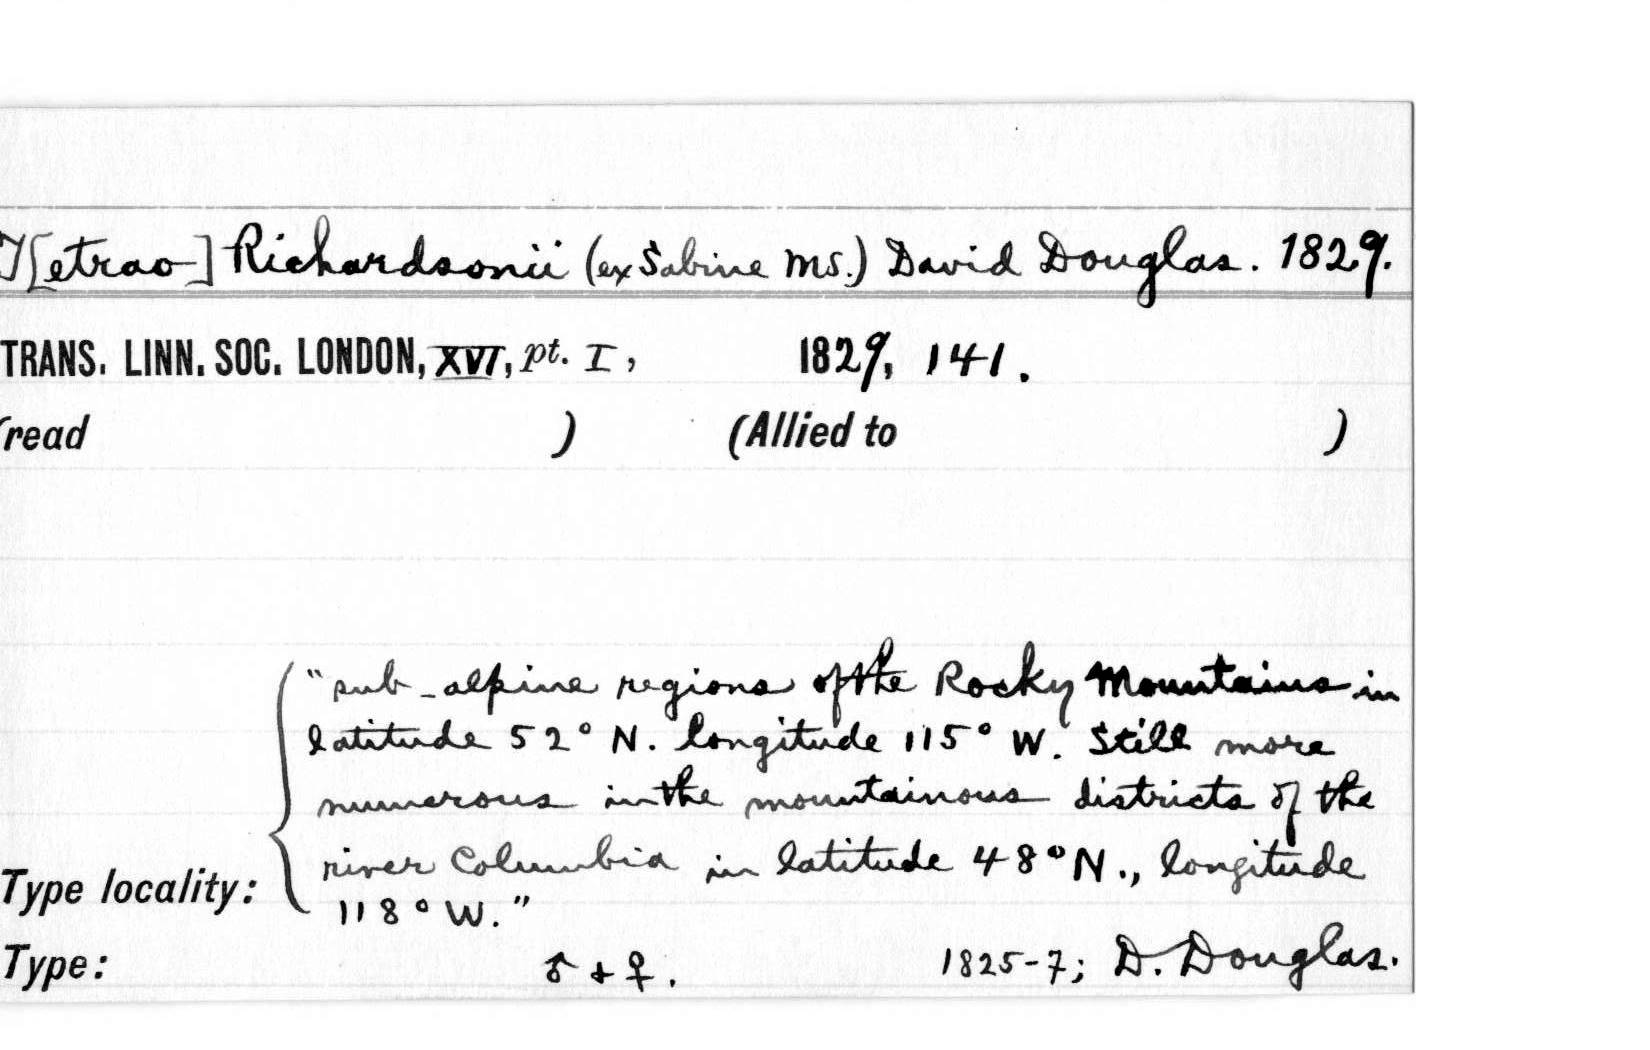 T[etrao] Richardsonii (ex Sabine MS.) David Douglas. 1829.
TRANS. LINN. SOC. LONDON, XVI, pt. I, 1829, 141.
(read ) (Allied to )
"sub-alpine regions of the Rocky Mountains in
latitude 52° N. longitude 115° W. Still more
numerous in the mountainous districts of the
river Columbia in latitude 48° N., longitude
Type locality: 118° W."
Type: ♂ + ♀. 1825-7; D. Douglas.